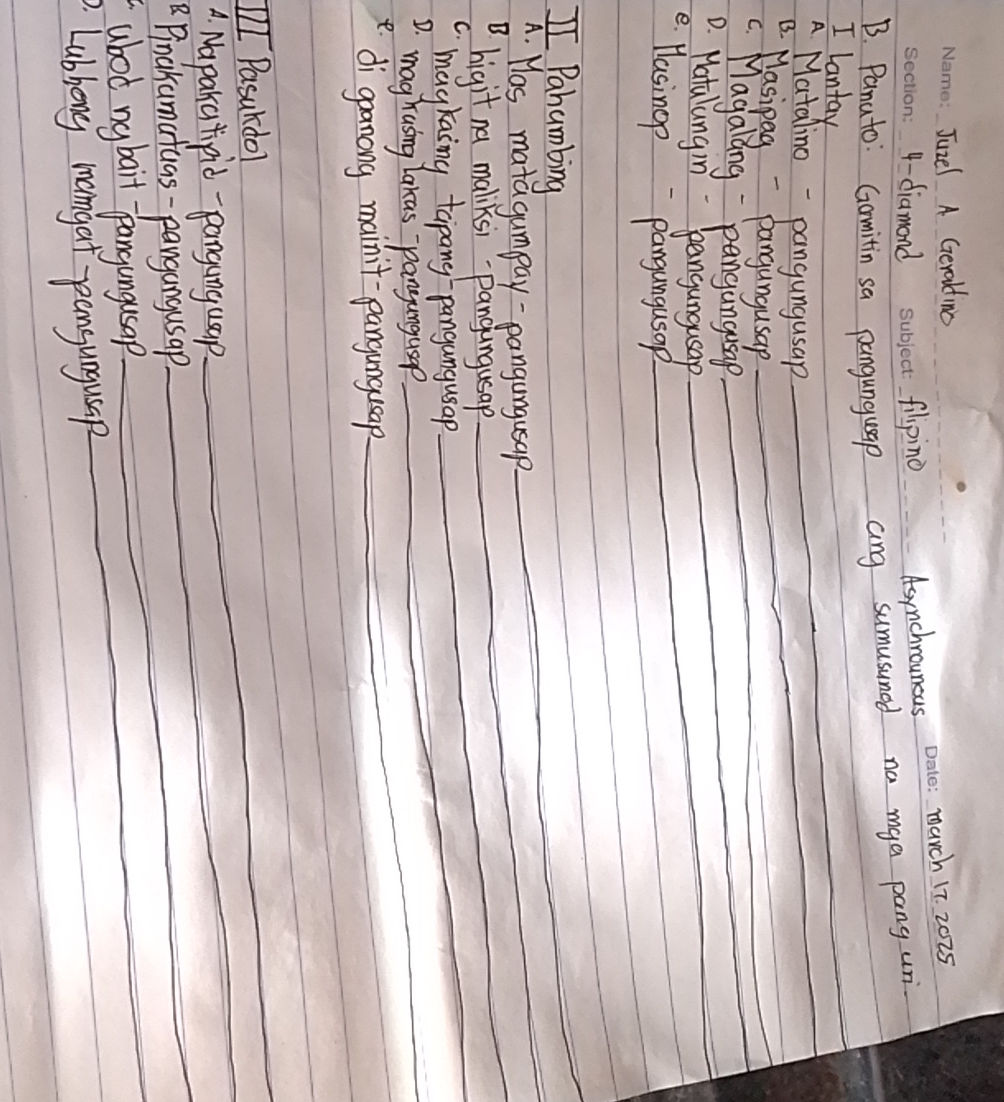 Name: Juzel A. Geraldino
Section: 4-diamond Subject: filipino Asynchrouneous Date: march 17. 2025
B. Panuto: Gamitin sa pangungusap ang sumusunod na mga pang uri-
I Lantay
A. Matalino - pangungusap
B. Masipag - pangungusap
C. Magalang - pangungusap
D. Matulungin - pangungusap
e. Masinop - pangungusap
II Pahambing
A. Mas matagumpay - pangungusap
B. higit na maliksi - pangungusap
C. magkasing tapang - pangungusap
D. magkasing lakas - pangungusap
e. di ganong mainit - pangungusap
III Pasukdol
A. Napakatipid - pangungusap
B Pinakamataas - pangungusap
Ubod ng bait - pangungusap
D. Lubhang maingat - pangungusap